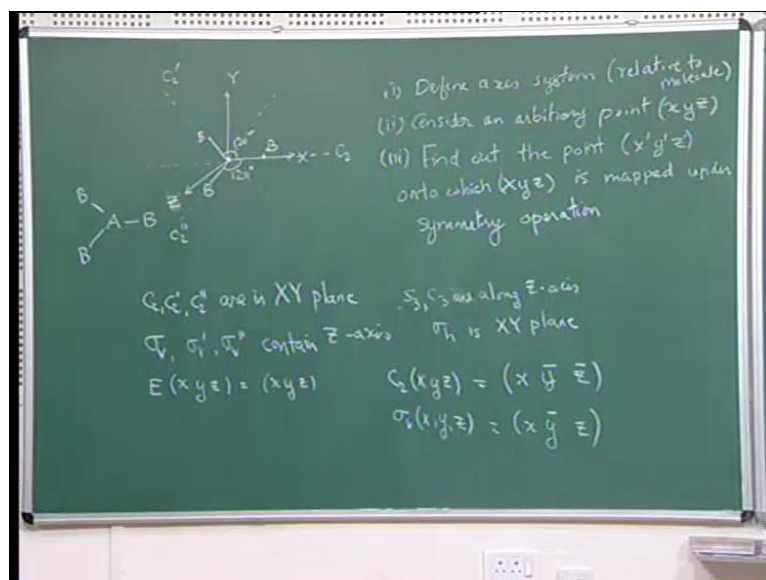 C₂'
Y
B
60°
B
X -- C₂
120°
B
Z
C₂''
B
A – B
B
(i) Define axis system (relative to molecule)
(ii) Consider an arbitiary point (x y z)
(iii) Find out the point (x' y' z')
onto which (x y z) is mapped under
symmetry operation
C₂, C₂', C₂'' are in XY plane
S₃, C₃ are along Z-axis
σᵥ, σᵥ', σᵥ'' contain Z-axis
σₕ is XY plane
E (x y z) = (x y z)
C₂ (x y z) = (x ȳ z̄)
σᵥ (x, y, z) = (x ȳ z)